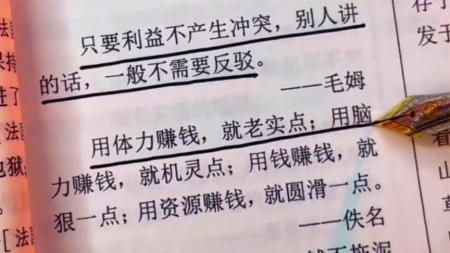 只要利益不产生冲突，别人讲
的话，一般不需要反驳。
——毛姆
用体力赚钱，就老实点；用脑
力赚钱，就机灵点；用钱赚钱，就
狠一点；用资源赚钱，就圆滑一点。
——佚名